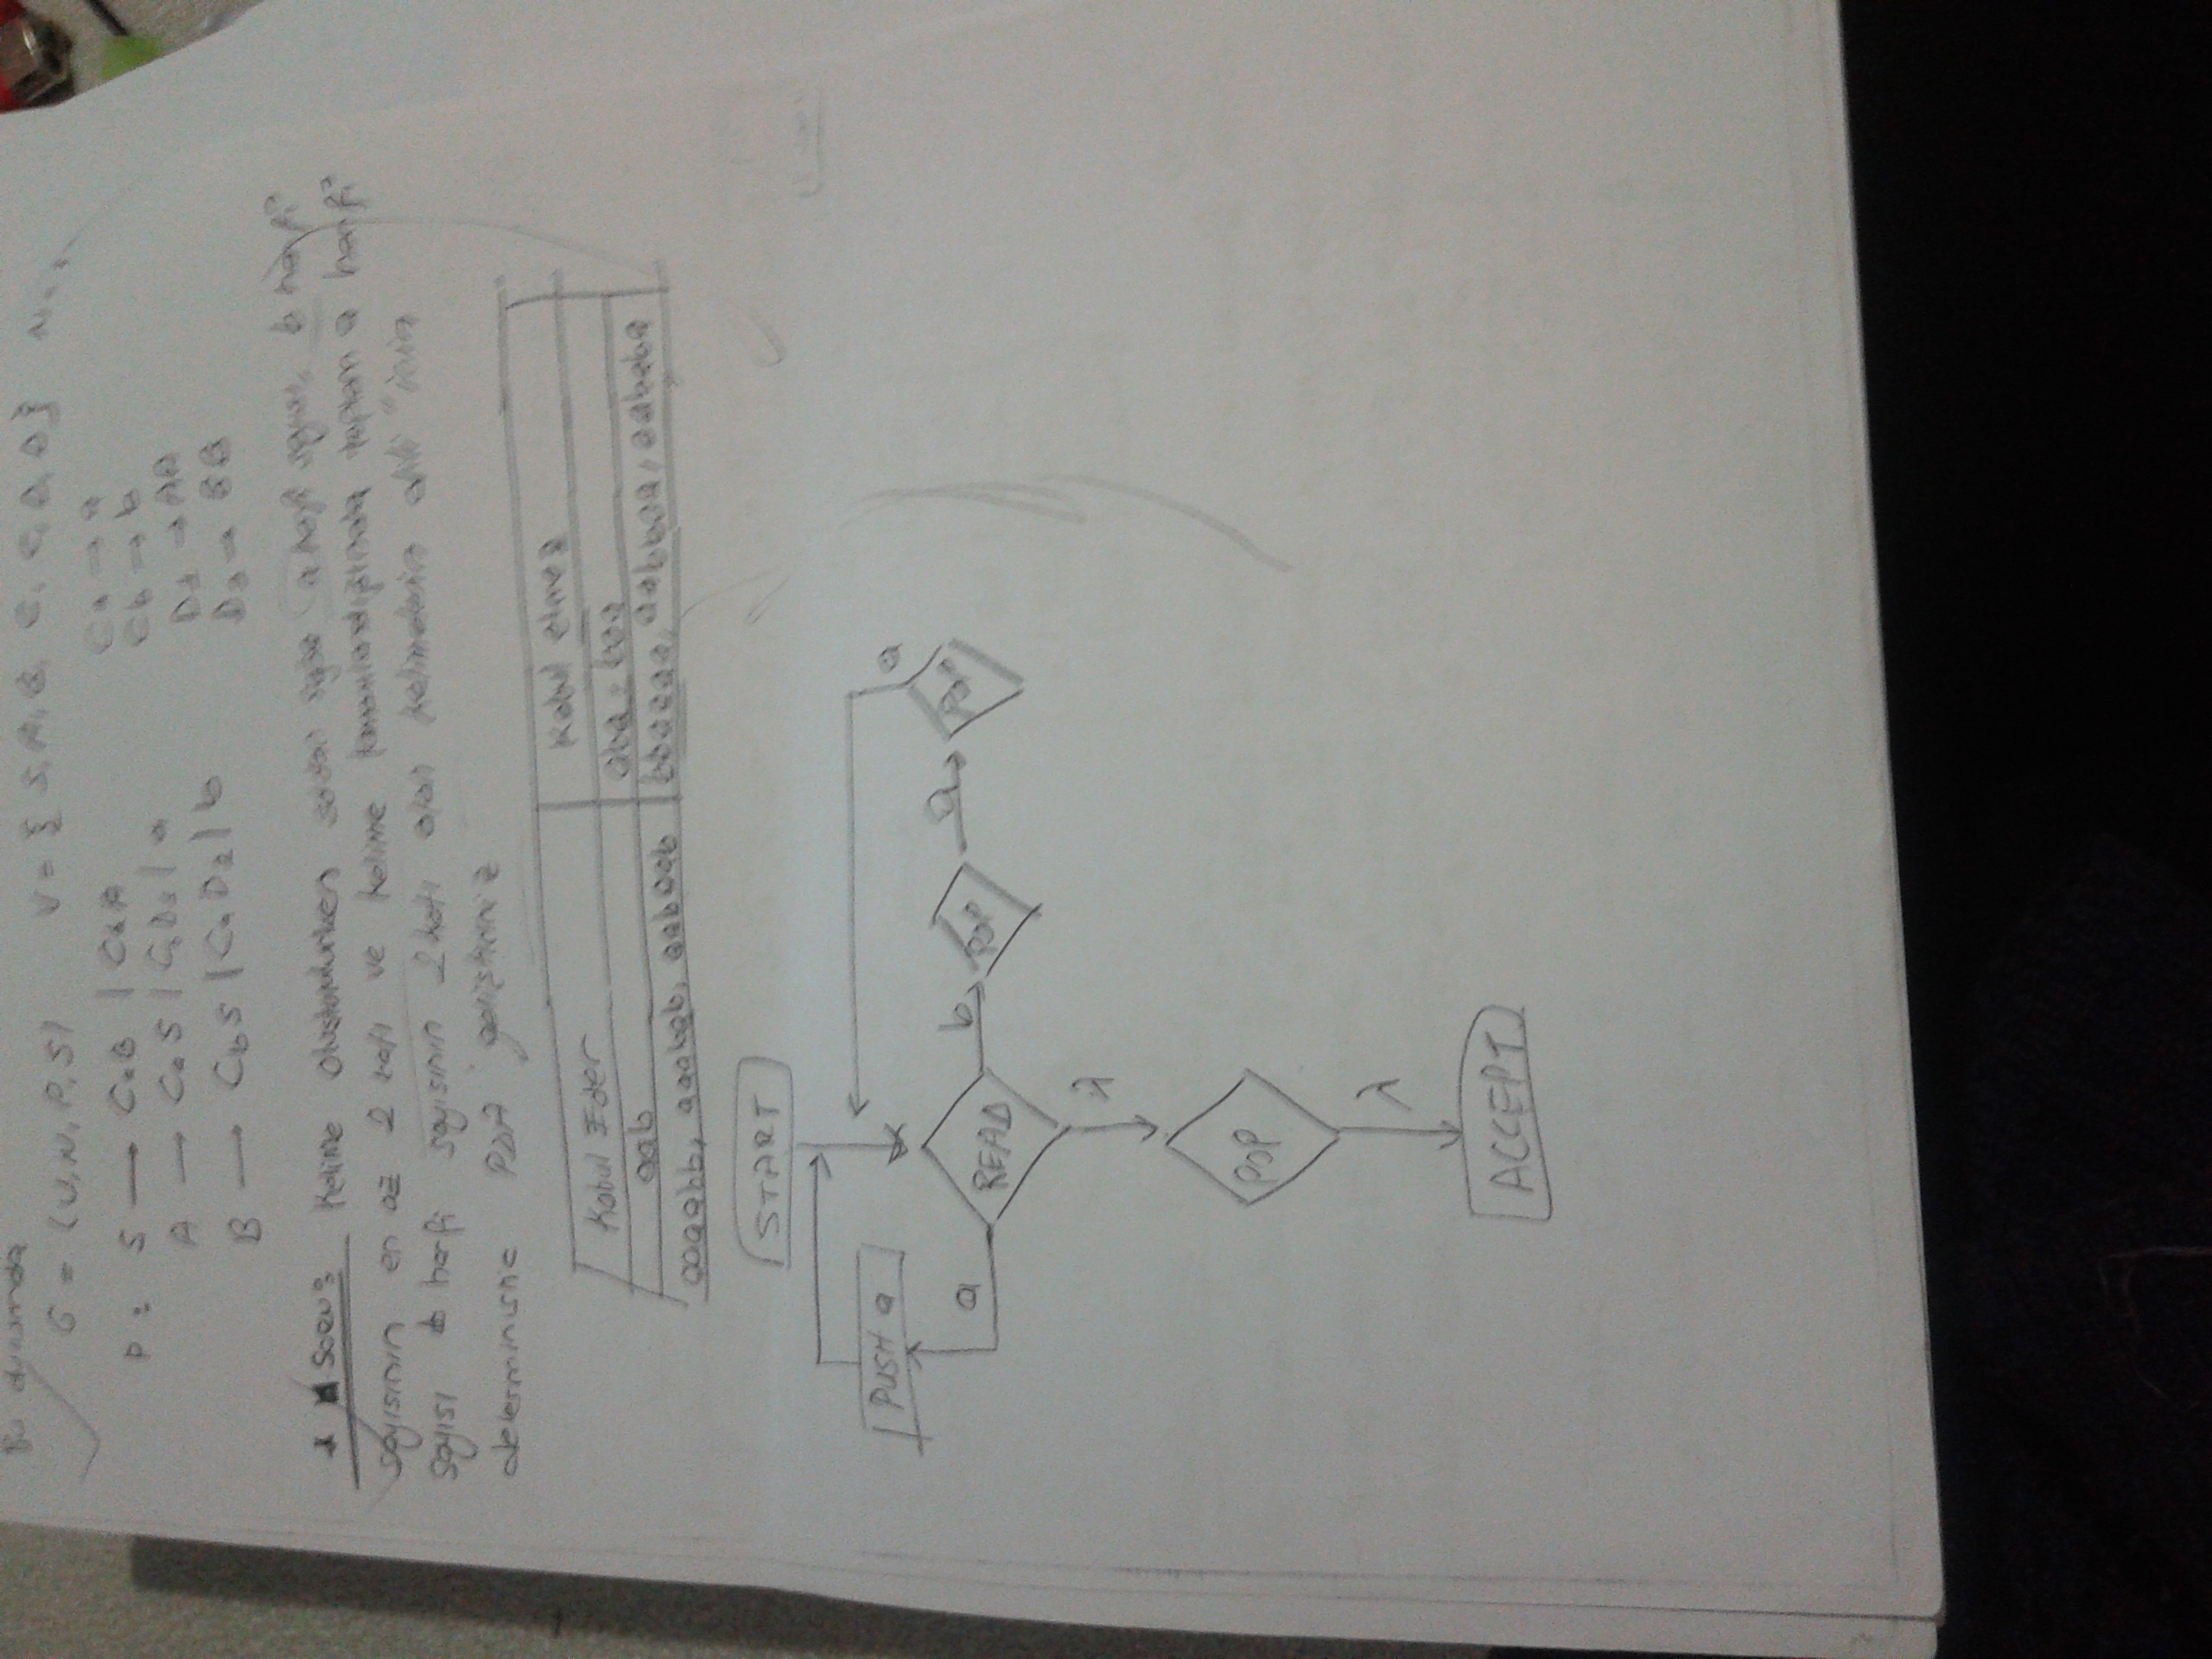 Bu durumda
G = (V, N, P, S) V = { S, A, B, C, C, D, D }
P : S → CaB | CbA Ca → a
Cb → b
A → CaS | CbD1 | a D1 → AA
B → CbS | CaD2 | b D2 → BB
SORU: Kelime oluşturulurken soldan sağa a harfi sayısı, b harfi
sayısının en az 2 katı ve kelime tamamlandığında toplam a harfi
sayısı b harfi sayısının 2 katı olan kelimelerin dili için
deterministic PDA geliştiriniz
Kabul Eder Kabul etmez
aab aba, baa
aaaabb, aaabab, aabaab bbaaaa, aabbaa, aababa
START
PUSH a
a
a READ b POP a POP
λ
POP
λ
ACCEPT